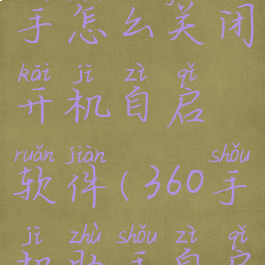 手怎么关闭
kāi jī zì qǐ
开机自启
ruǎn jiàn shǒu
软件(360手
jī zhù shǒu zì qǐ
机助手自启